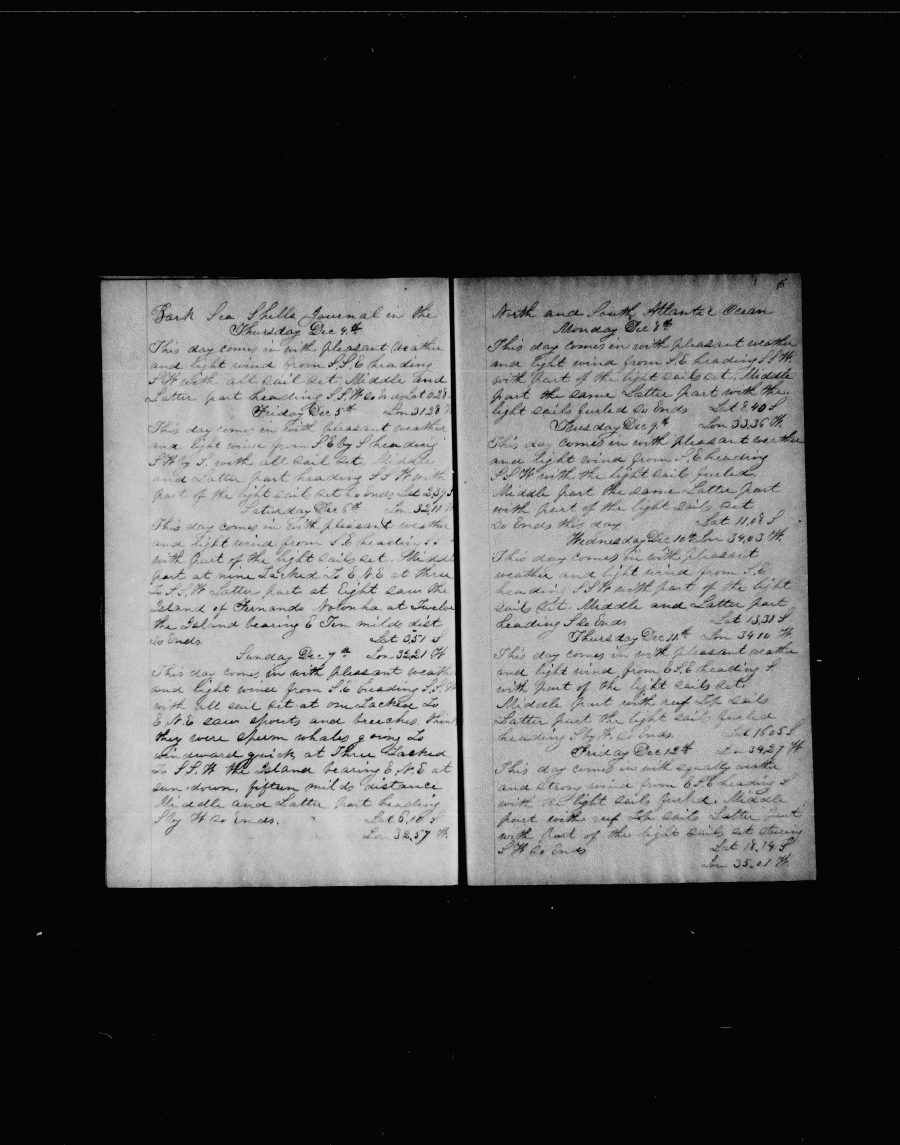 Bark Sea Shells Journal in the
Thursday Dec 4th
This day comes in with pleasant weather
and light wind from S.S.E heading
S W with all sail set, Middle and
Latter part heading S.S.W So Ends Lat 0.28
Friday Dec 5th Lon 31.28 W
This day comes in with pleasant weather
and light wind from S E by S heading
S W by S. with all sail set. Middle
and Latter part heading S S W with
part of the light sail set So Ends Lat 2,39 S
Saturday Dec 6th Lon 32,11 W
This day comes in with pleasant weather
and light wind from S.E heading S.S
with part of the light sails set. Middle
part at nine Tacked To E.N.E at three
To S.S.W Latter part at Eight saw the
Island of Fernando Noronha at Twelve
the Island bearing E Ten mild dist
So Ends Lat 3,51 S
Sunday Dec 7th Lon 32,21 W
This day comes in with pleasant weather
and light wind from S.E heading S.S.W
with all sail set at one Tacked To
E N.E saw spouts and breeches. think
they were sperm whales going To
windward quick at Three Tacked
To S S. W the Island bearing E.N.E at
sun-down, fiften mild distance
Middle and Latter Part heading
S by W So Ends. Lat 6,16 S
Lon 32,57 W.
6
North and South Atlantic Ocean
Monday Dec 8th
This day comes in with pleasant weather
and light wind from S.E heading S.S.W.
with part of the light sails set. Middle
part the same Latter part with the
light sails furled So Ends Lat 8.40 S
Tuesday Dec 9th Lon 33,36 W.
This day comes in with pleasant weather
and light wind from S.E heading
S S W with the light sail furled
Middle part the same Latter part
with part of the light sails set
So Ends this day Lat 11,08 S
Wednesday Dec 10th Lon 34,03 W.
This day comes in with pleasant
weather and light wind from S.E
heading S S W with part of the light
sail set. Middle and Latter part
heading S So Ends Lat 13,31 S
Thursday Dec 11th Lon 34 10 W
This day comes in with pleasant weather
and light wind from E S.E heading S
with part of the light sails set.
Middle part with reef Top sails
Latter part the light sail furled
heading S by W. So Ends. Lat 16 05 S
Friday Dec 12th Lon 34,27 W
This day comes in with squally weather
and strong wind from E S.E heading S
with the light sails furled. Middle
part with reef Top sails Latter part
with Part of the light sails set steering
S W So Ends Lat 18.14 S
Lon 35.01 W.